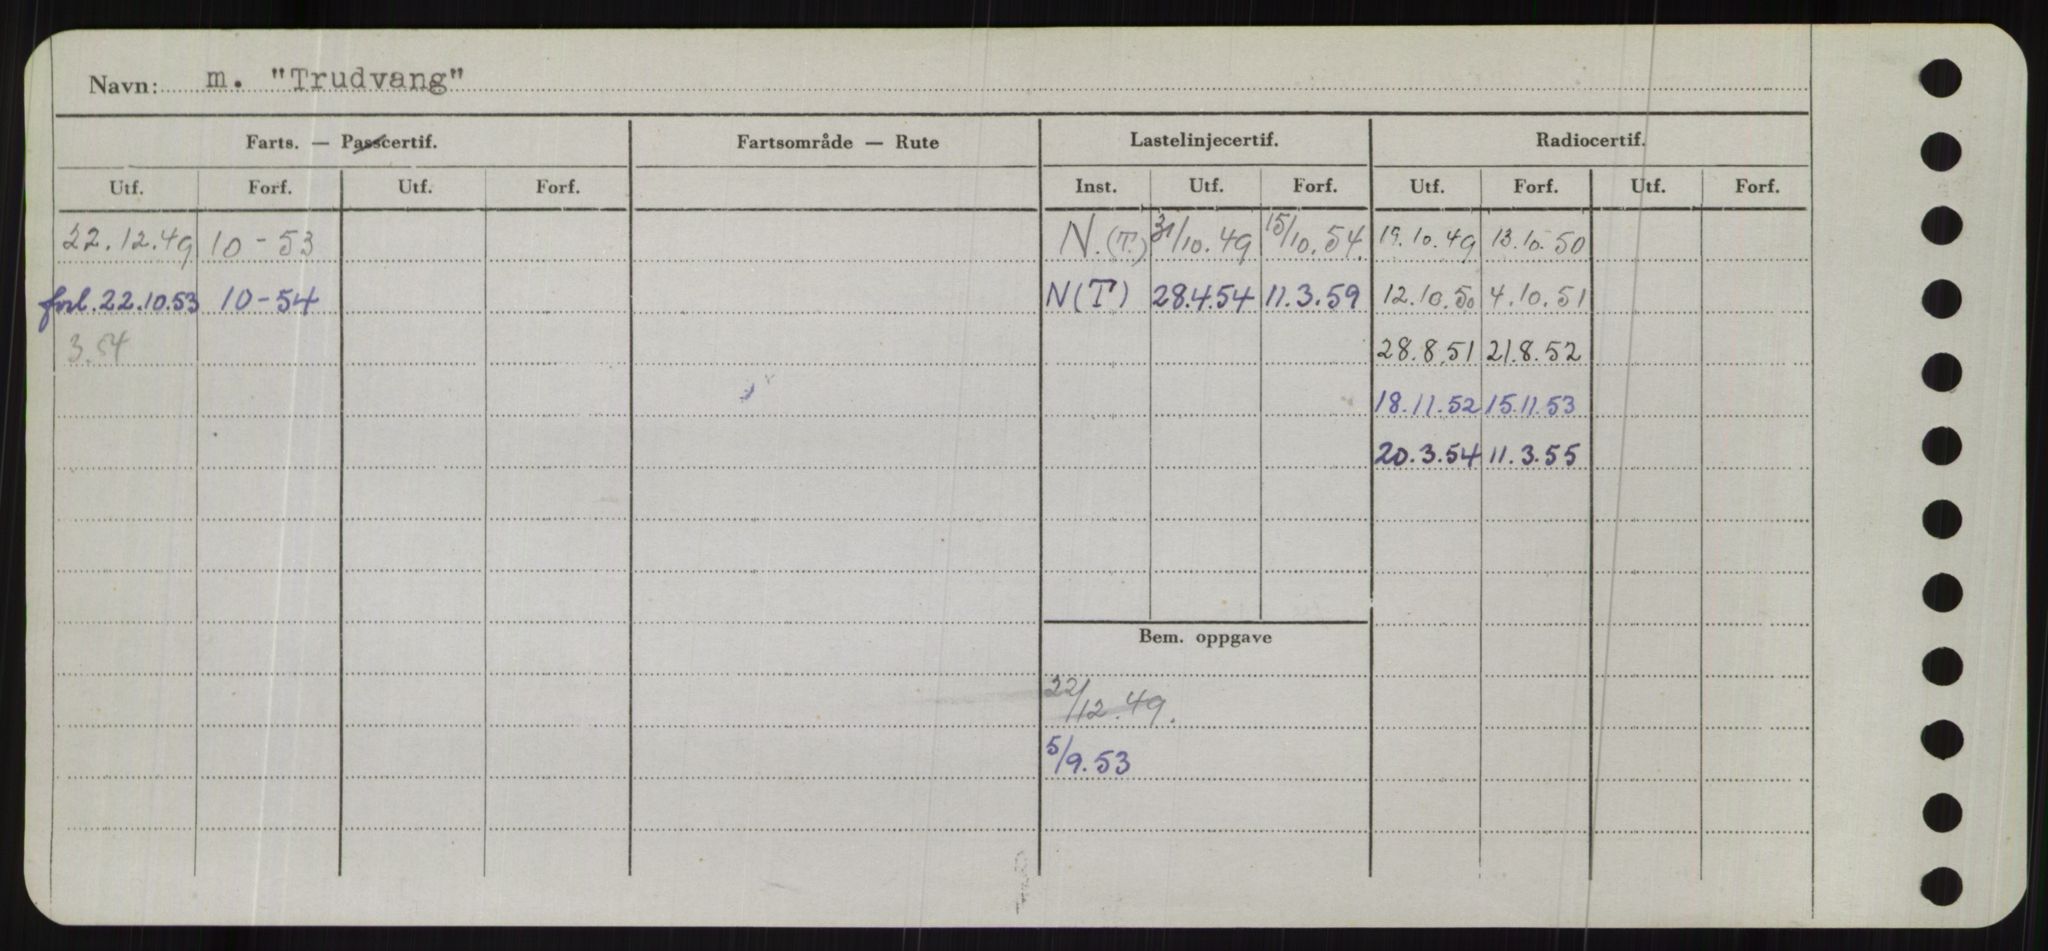 Navn: m. "Trudvang"
Farts. — Passcertif. Fartsområde — Rute Lastelinjecertif. Radiocertif.
Utf. Forf. Utf. Forf. Inst. Utf. Forf. Utf. Forf. Utf. Forf.
22.12.49 10-53 N.(T.) 31/10.49 15/10.54. 19.10.49 13.10.50
forl. 22.10.53 10-54 N(T) 28.4.54 11.3.59 12.10.50 4.10.51
3.54 28.8.51 21.8.52
18.11.52 15.11.53
20.3.54 11.3.55
Bem. oppgave
22/12.49.
5/9.53